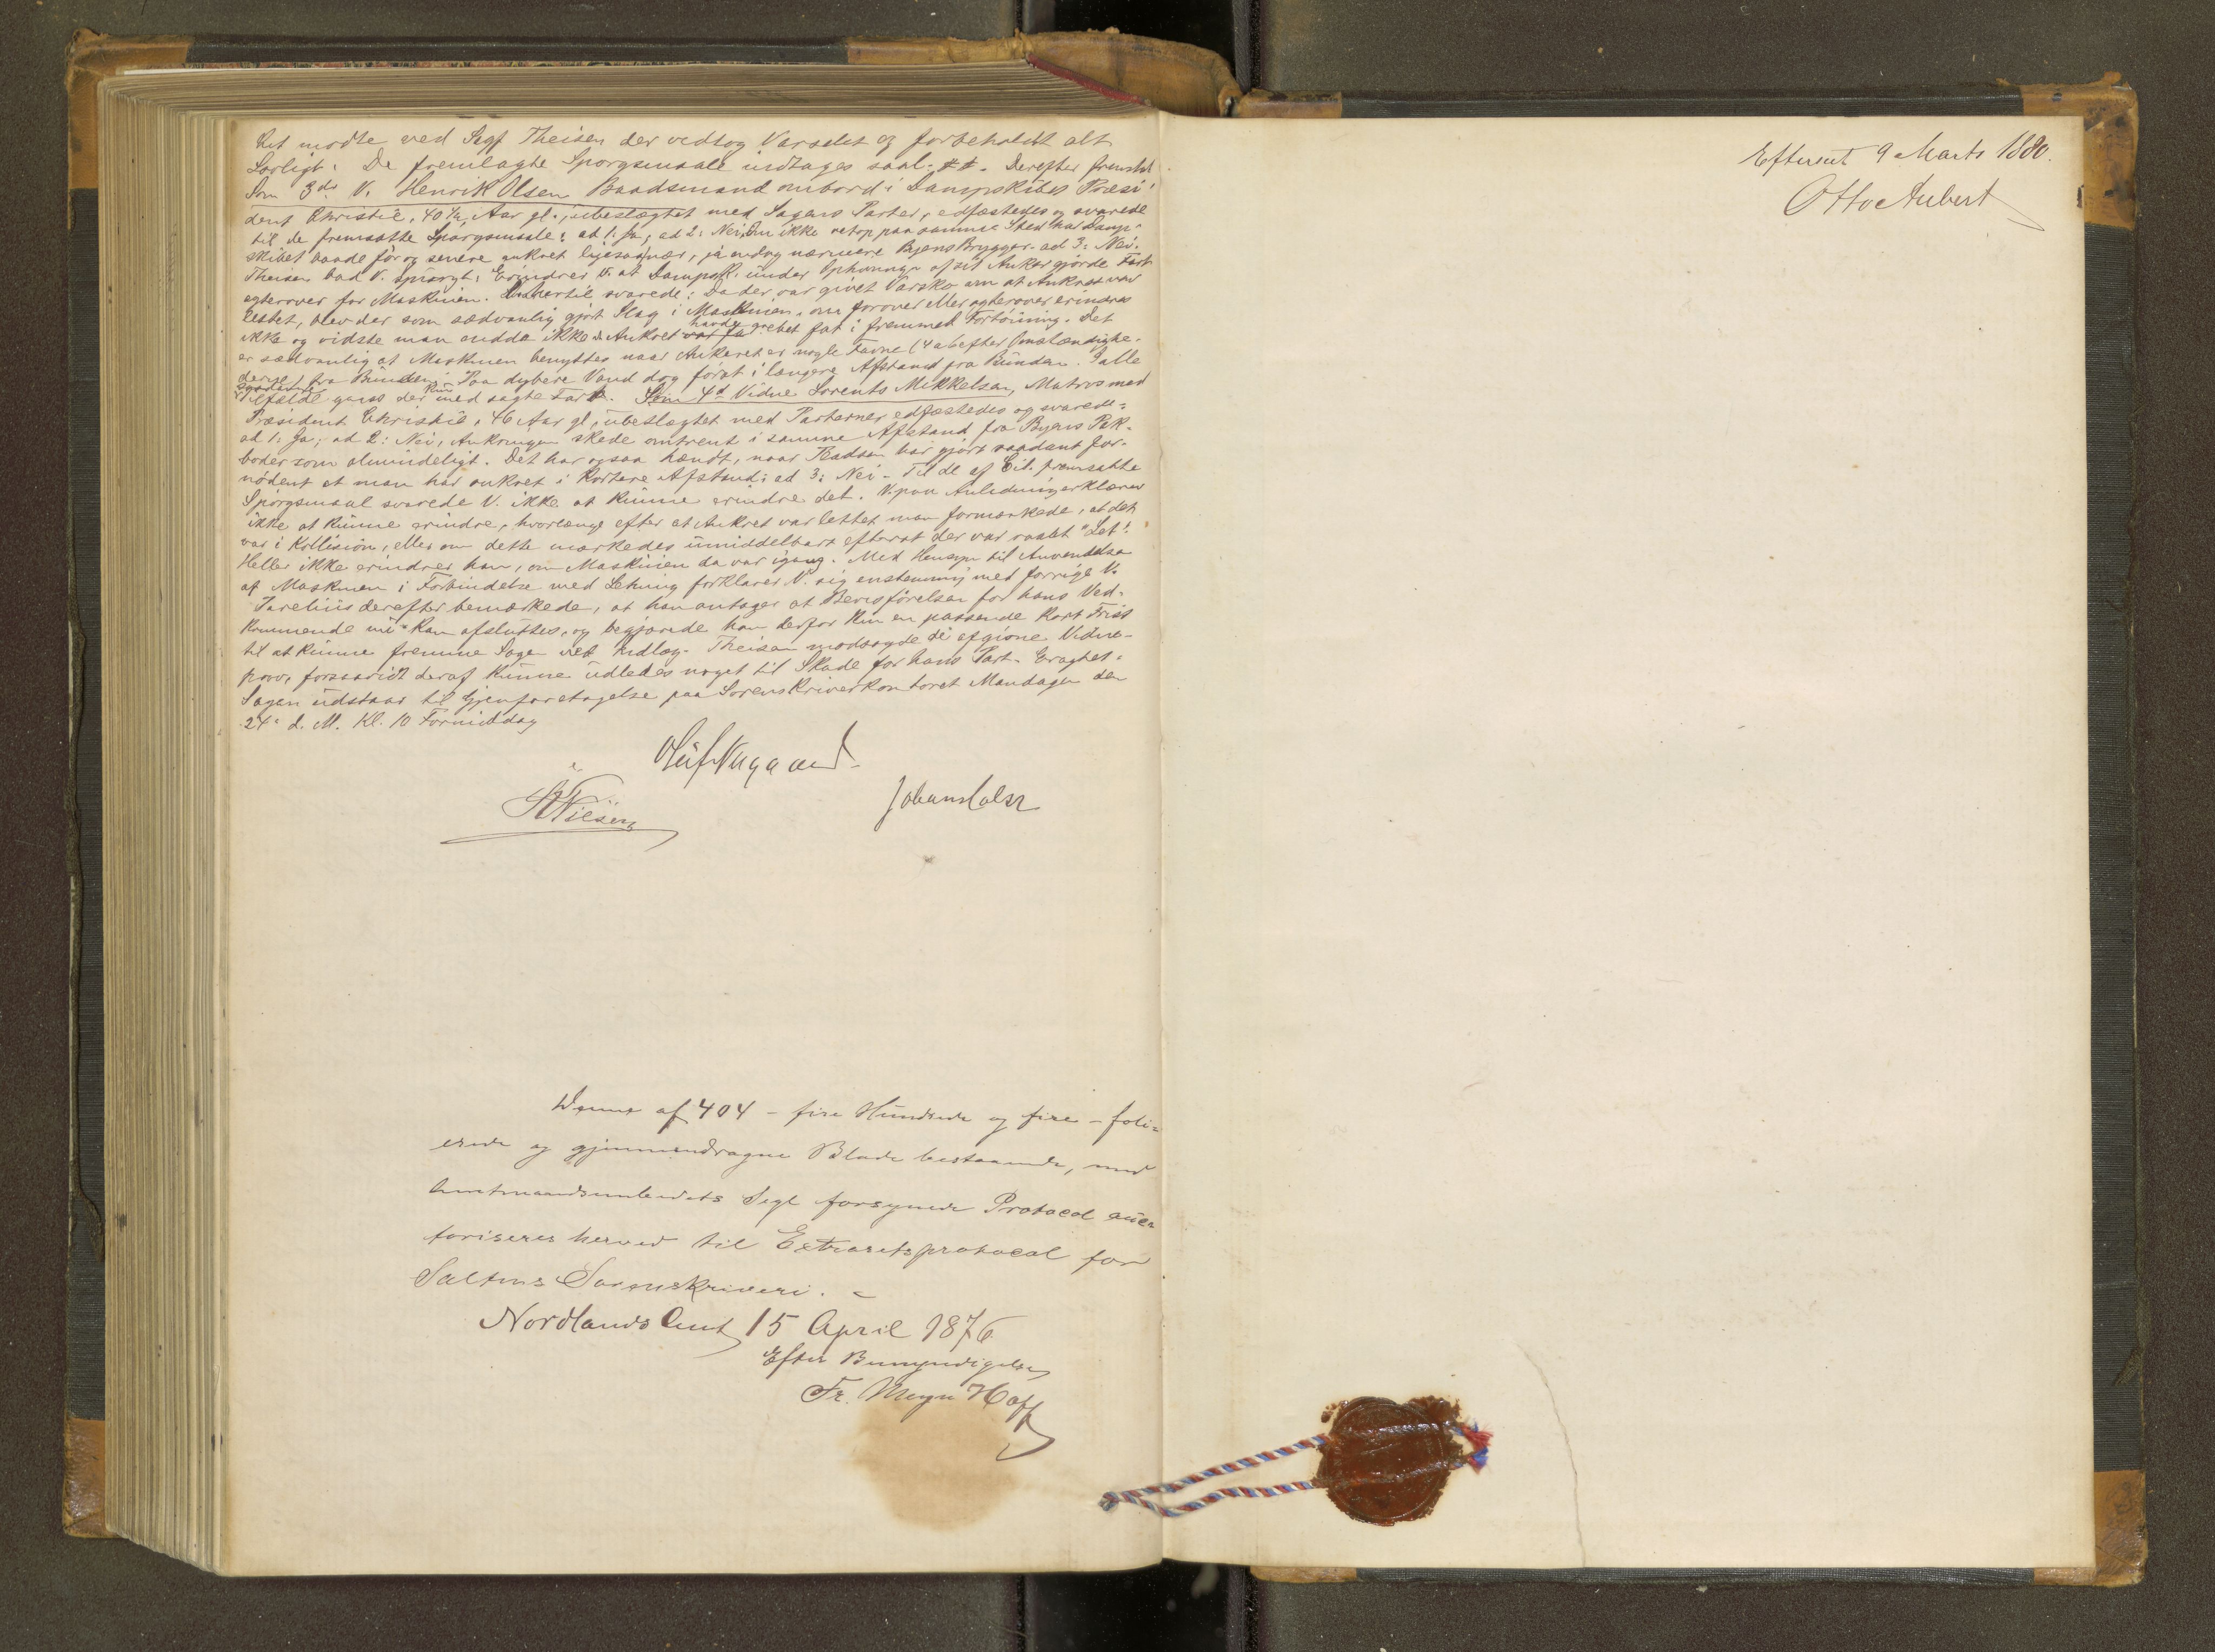 det mødte ved Sagf Theisen der vedtog Varselet og forbeholdt alt
Lovligt. De fremlagte Spørgsmaale indtages saal: ## . Derefter fremstod
Som 3die V. Henrik Olsen Baadsmand ombord i Dampskibet Præsi-
dent Christie, 40½ Aar gl., ubeslægtet med Sagens Parter, edfæstedes og svarede
til de fremsatte Spørgsmaale: ad 1: Ja; ad 2: Nei, om ikke netop paa samme Sted har Damp-
skibet baade før og senere ankret ligesaa nær, ja endog nærmere Byens Brygger. ad 3: Nei.
Theisen bad V. spurgt: Erindrer V. at Dampsk. under Ophivningen af sit Anker gjorde Fart
agterover for Maskinen. Hertil svarede: Da der var givet Varsko om at Ankret var
lettet, blev der som sædvanlig gjort Slag i Maskinen, om forover eller agterover erindres
ikke og vidste man endda ikke at Ankret havde grebet fat i fremmed Fortøining. Det
er sædvanlig at Maskinen benyttes naar Ankeret er nogle Favne (4 a 6 efter Omstændighe-
derne) fra Bunden. Paa dybere Vand dog først i længere Afstand fra Bunden. I alle
saadanne Tilfælde gaaes der kun med sagte Fart. Som 4de Vidne Lorents Mikkelsen, Matros med
Præsident Christie, 46 Aar gl, ubeslægtet med Parterne, edfæstedes og svarede:
ad 1: Ja; ad 2: Nei, Ankringen skede omtrent i samme Afstand fra Byens Pak-
boder som almindeligt. Det har ogsaa hændt, naar Pladsen har gjort saadant for-
nødent at man har ankret i kortere Afstand: ad 3: Nei. Til de af Cit. fremsatte
Spørgsmaal svarede V. ikke at kunne erindre det. V. paa Anledning erklærer
ikke at kunne erindre, hvorlænge efter at Ankret var lettet man formærkede, at det
var i Kollision, eller om dette mærkedes umiddelbart efterat der var raabt "Let!
Heller ikke erindrer han, om Maskinen da var igang. Med Hensyn til Anvendelse
af Maskinen i Forbindelse med Letning forklarer V. sig enstemmig med forrige V.
Jarelius derefter bemærkede, at han antager at Bevisførelsen for hans Ved-
kommende nu kan afsluttes, og begjærede han derfor kun en passende kort Frist
til at kunne fremme Sagen ved Indlæg. Theisen modsagde de afgivne Vidne-
prov, forsaavidt deraf kunne udledes noget til Skade for hans Part. Eragtet:
Sagen udstaar til Gjenforetagelse paa Sorenskriverkontoret Mandagen den
24de d. M. Kl. 10 Formiddag
Johan Olsen
Denne af 404 - fire Hundrede og fire - foli-
erede og gjennemdragne Blade bestaaende, med
Amtmandsembedets Segl forsynede Protocol auc-
toriseres herved til Extraretsprotocol for
Saltens Sorenskriveri.
Nordlands Amt 15 April 1876
Efter Bemyndigelse
Fr. Meyn Hoff
Efterseet 9 Marts 1880.
Otto Aubert